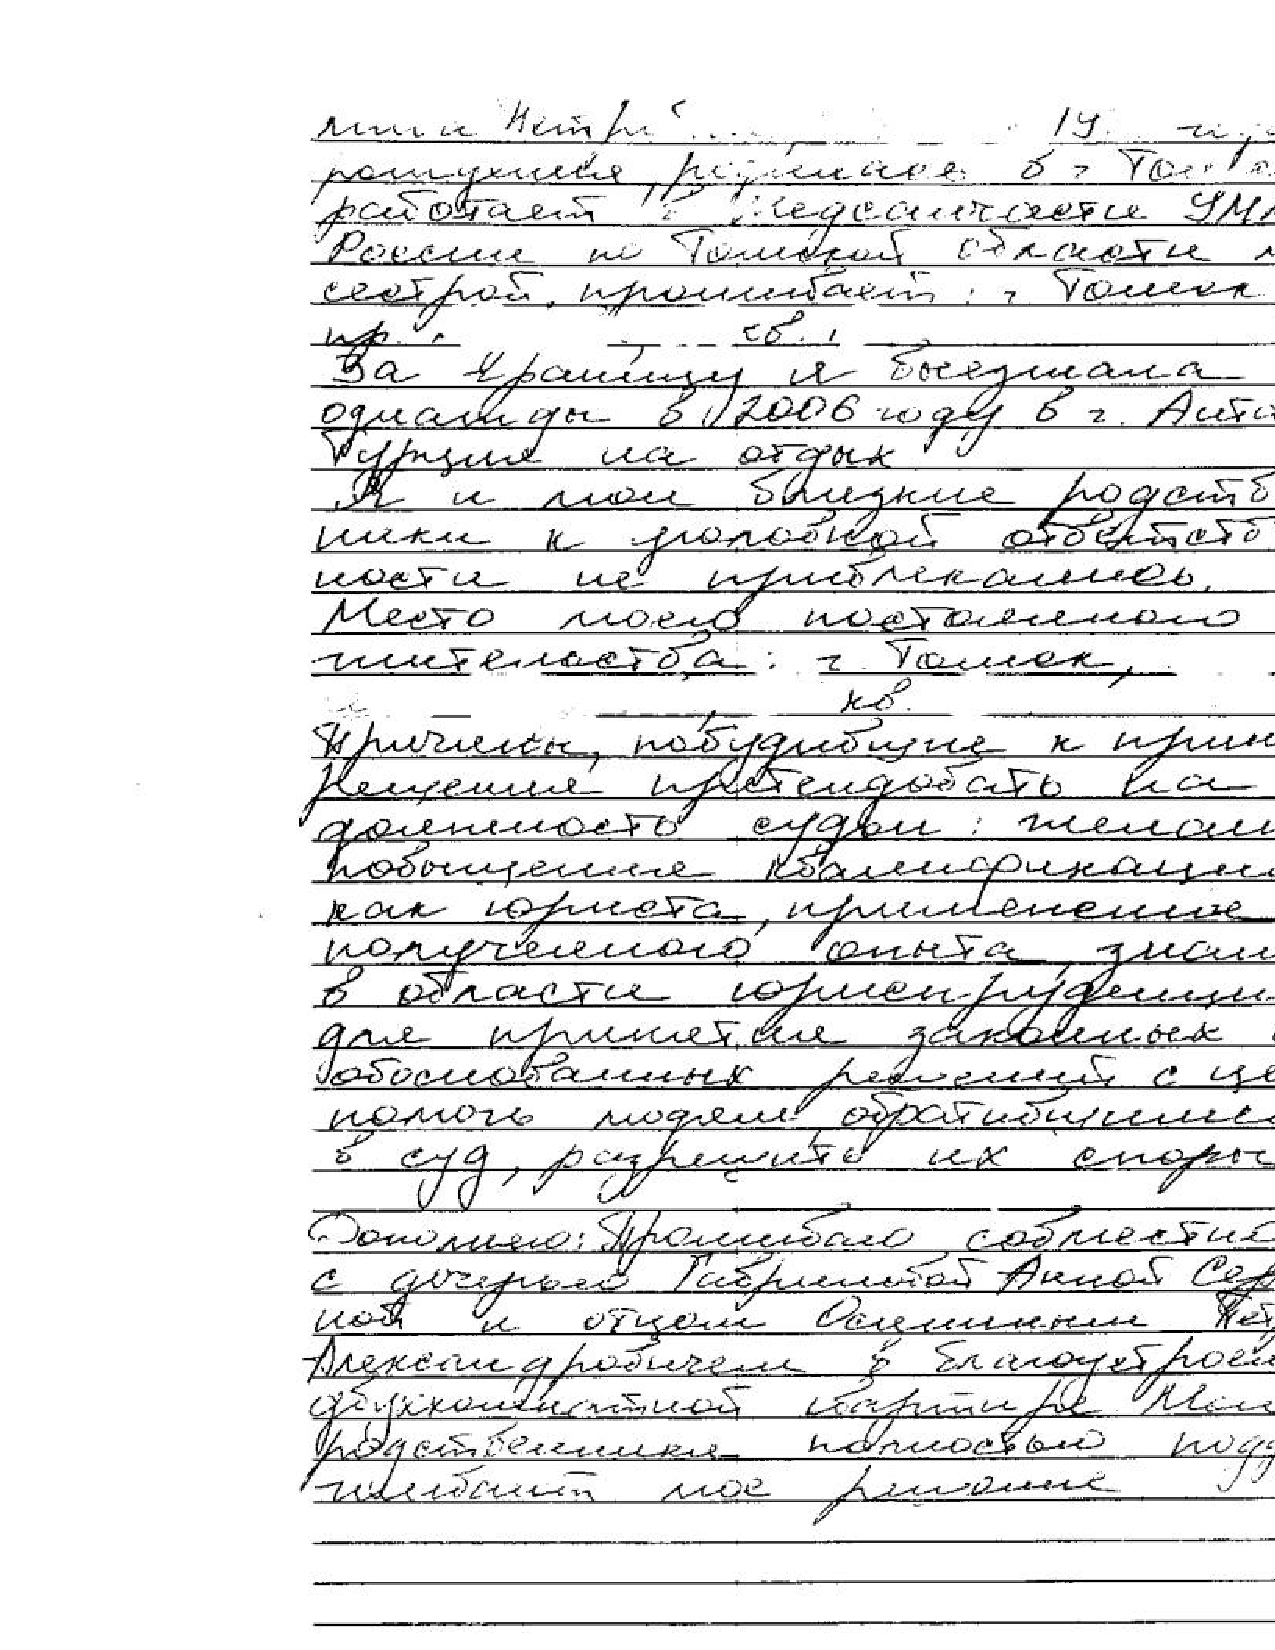 19
рождения, родилась в г. Том
работает в Медсанчасти УМ
России по Томской области м
сестрой, проживает: г. Томск
пр. кв.
За границу я выезжала
однажды в 2006 году в г. Анта
Турция на отдых
Я и мои близкие родств
ники к уголовной ответств
ности не привлекались.
Место моего постоянного
жительства: г. Томск,
кв.
Причины, побудившие к прин
решения претендовать на
должность судьи: желани
повышение квалификаци
как юриста, применение
полученного опыта, знан
в области юриспруденци
для принятие законных
обоснованных решений с це
помочь людям, обратившимс
в суд, разрешить их споры
Дополняю: Проживаю совместн
с дочерью Гавриловой Анной Сер
ной и отцом Осениным Пет
Александровичем в благоустроен
двухкомнатной квартире. Мои
родственники полностью подд
живают мое решение